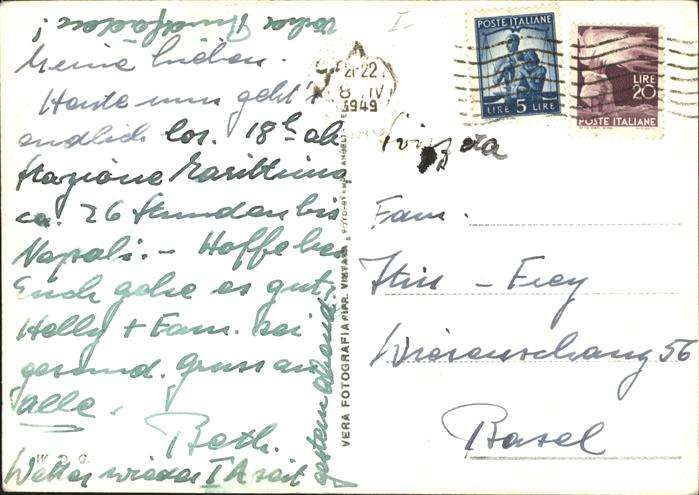 Meine Lieben.
Heute nun geht's
endlich los. 18h ab
Stazione Marittima,
ca. 26 Stunden bis
Napoli. - Hoffe bei
Euch gehe es gut,
Helly + Fam. sei
gesund. Gruss an
alle.
Beth.
Wetter wieder I A seit
gestern Abend.
W. D. G.
VERA FOTOGRAFIA RIPR. VIETATA
21-22
8 IV
1949
POSTE ITALIANE
LIRE 5 LIRE
LIRE
20
POSTE ITALIANE
Svizzera
Fam.
Itin - Frey
Wiesenschanz 56
Basel